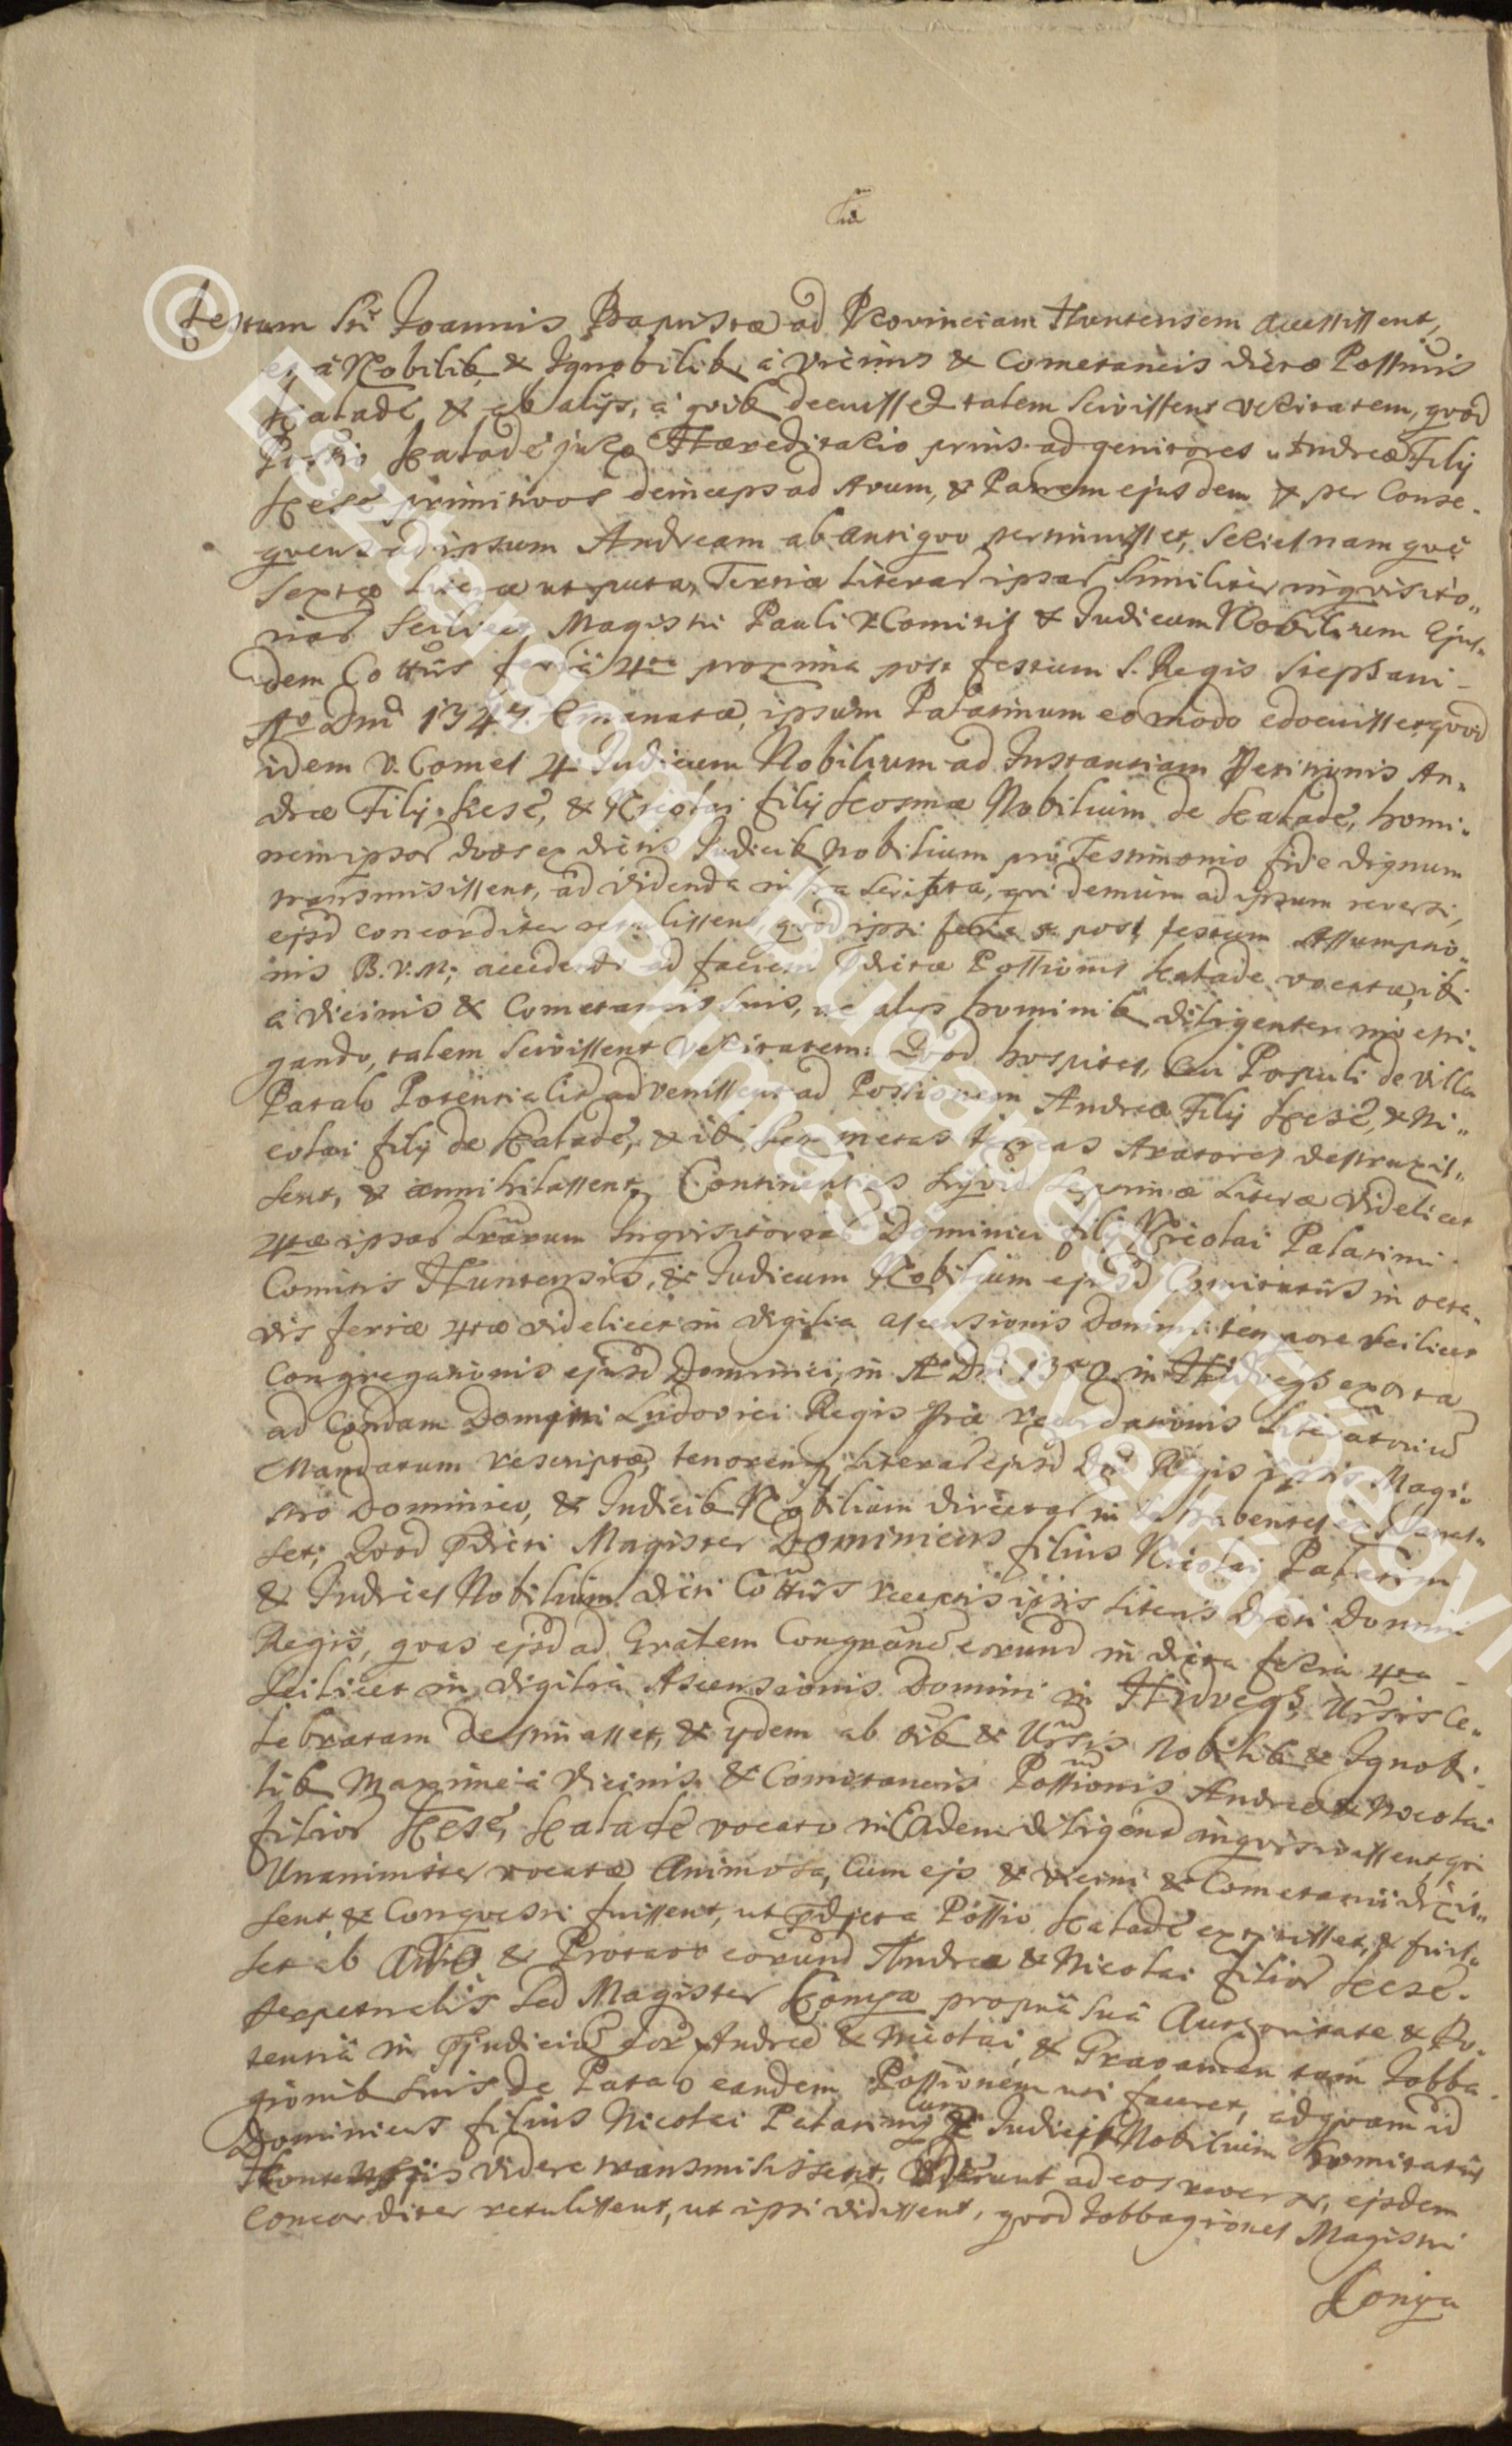 festum Sti Joannis Baptistæ ad Provinciam Huntensem accessissent,
et à Nobilib. & Ignobilib. à vicinis & Cometaneis dictæ Possionis
Kalade, & ab alijs, à quib decuisset talem scivissent veritatem, quod
Possio Kalade jure Hæreditario prius ad genitores Andreæ Filij
Kesé primitivos deinceps ad Avum, & Patrem ejusdem & per Conse-
quens ad ipsum Andream ab antiquo pertinuisset,
Sextæ Literæ utputa, Tertiæ Literar ipsar similiter inquisito-
riar scilicet Magistri Pauli V Comitis & Judicum Nobilium Ejus-
dem Cottus feria 4ta proxima post festum S. Regis Stephani
Ao Dni 1347. Emanatæ, ipsum Palatinum eo modo edocuisset, quod
idem V. Comes 4. Judicum Nobilium ad Instantiam Petitionis An-
dreæ Filij Kesé, & Nicolai filij Kosmæ Nobilium de Kalade, homi-
nem ipsor duos ex dictis Judicib Nobilium pro Testimonio fide dignum
transmisissent, ad videnda infra scripta, qui demum ad ipsum reversi,
ejsd concorditer retulissent, quod ipsi feria post festum Assumptio-
nis B.V.M. accedendo ad faciem dictæ Possionis Kalade vocatæ, ib.
à vicinis & Cometaneis suis, ac alijs hominib diligenter investi-
gando, talem scivissent veritatem: Quod hospites, seu Populi de villa
Patak Potentialiter advenissent ad Possionem Andreæ Filij Kesé, & Ni-
colai filij de Kalade, & ib. metas terreas Aratores destruxis-
sent, & annihilassent, Continentias Septimæ Literæ videlicet
4tæ ipsar Lrarum Inquisitoriar Dominici filij Nicolai Palatini
Comitis Huntensis, & Judicum Nobilium ejusd Comitatus in octa-
vis feriæ 4tæ videlicet in vigilia ascensionis Domini tempore scilicet
Congregationis ejusd Dominici, in Ao Dni 1350 in Hidvegh exorta
ad Condam Domini Ludovici Regis piæ recordationis Literatoriu
Mandatum rescriptæ, tenorem Literar ejusd Dni Regis ipsis Magi-
stro Dominico, & Judicib Nobilium directar in se habentes
set; Quod pdicti Magister Dominicus filius Nicolai Palatini
& Judices Nobilium dicti Cottus receptis ipsis Literis dicti Domini
Regis, quas ejsd ad Gralem Congraone eorund in dicta feria 4ta
scilicet in vigilia Ascensionis Domini in Hidvegh, Ursis Ce-
lebratam destinasset, & ydem ab oib & Ursis Nobilib & Ignobi-
lib Maxime à vicinis & Cometaneis Possionis Andreæ & Nicolai
filior Kesé, Kalade vocatæ in Eadem diligend inquisivissent, qui
Unanimiter vocatæ Animosa, Cum ejs & vicini & Cometanei dixis-
sent & Conquesti fuissent, ut pdicta Possio Kalade extitisset, & fuis-
set ab Avo & Protavo eorund Andreæ & Nicolai filior Kesé.
perpetualis sed Magister Konya propriâ suâ Authoritate & Po-
tentiâ in pjudiciu Andreæ & Nicolai, & Gravamen tam Jobba-
gionib suis de Patak eandem Possionem uti faceret, ad quam id
Dominicus filius Nicolai Palatiny cum Judicib Nobilium Comitatus
Hontensis videre transmisissent, ad eos reversi, ejsdem
Concorditer retulissent, ut ipsi vidissent, quod Jobbagiones Magistri
Konya
© Esztergomi-Budapesti Főegy
Prímási Levéltár